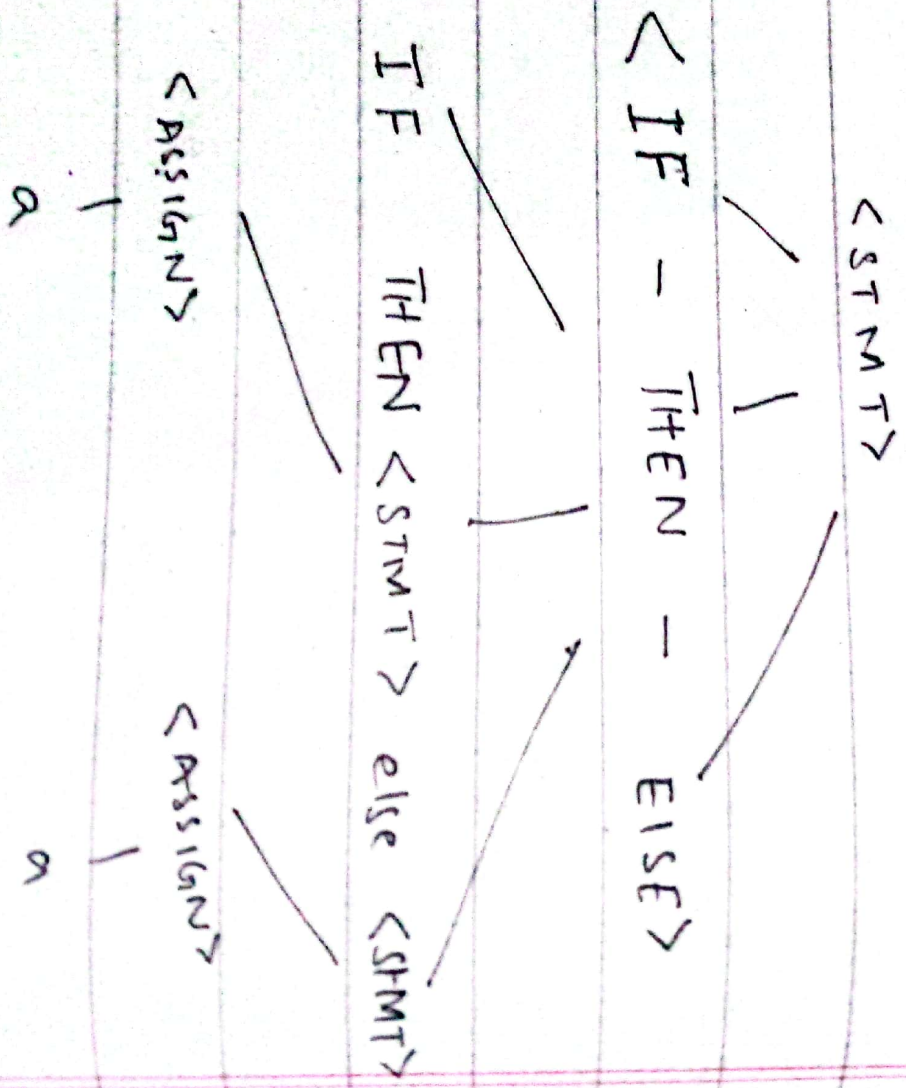 <STMT>
<IF - THEN - ElSE>
IF THEN <STMT> else <StMT>
<ASSIGN> <ASSIGN>
a a